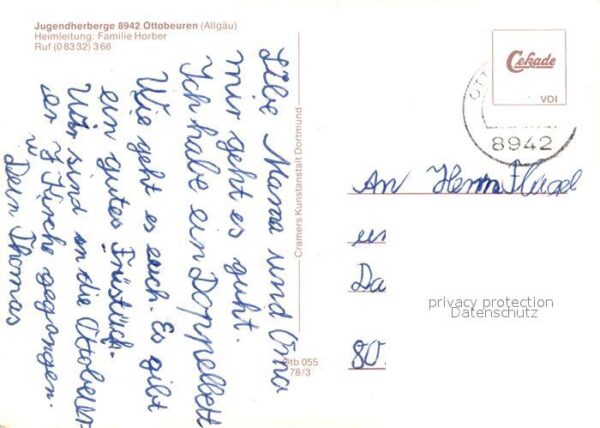 Jugendherberge 8942 Ottobeuren (Allgäu)
Heimleitung: Familie Horber
Ruf (08332) 368
Liebe Mama und Oma
mir geht es guht.
Ich habe ein Doppelbett
Wie geht es euch. Es gibt
ein gutes Früstück.
Wir sind in die Ottobeur
er Kirche gegangen.
Dein Thomas
Cramers Kunstanstalt Dortmund
Otb 055
78/3
Cekade
VOI
8942
An Herrn Flügel
un
Da
80
privacy protection
Datenschutz